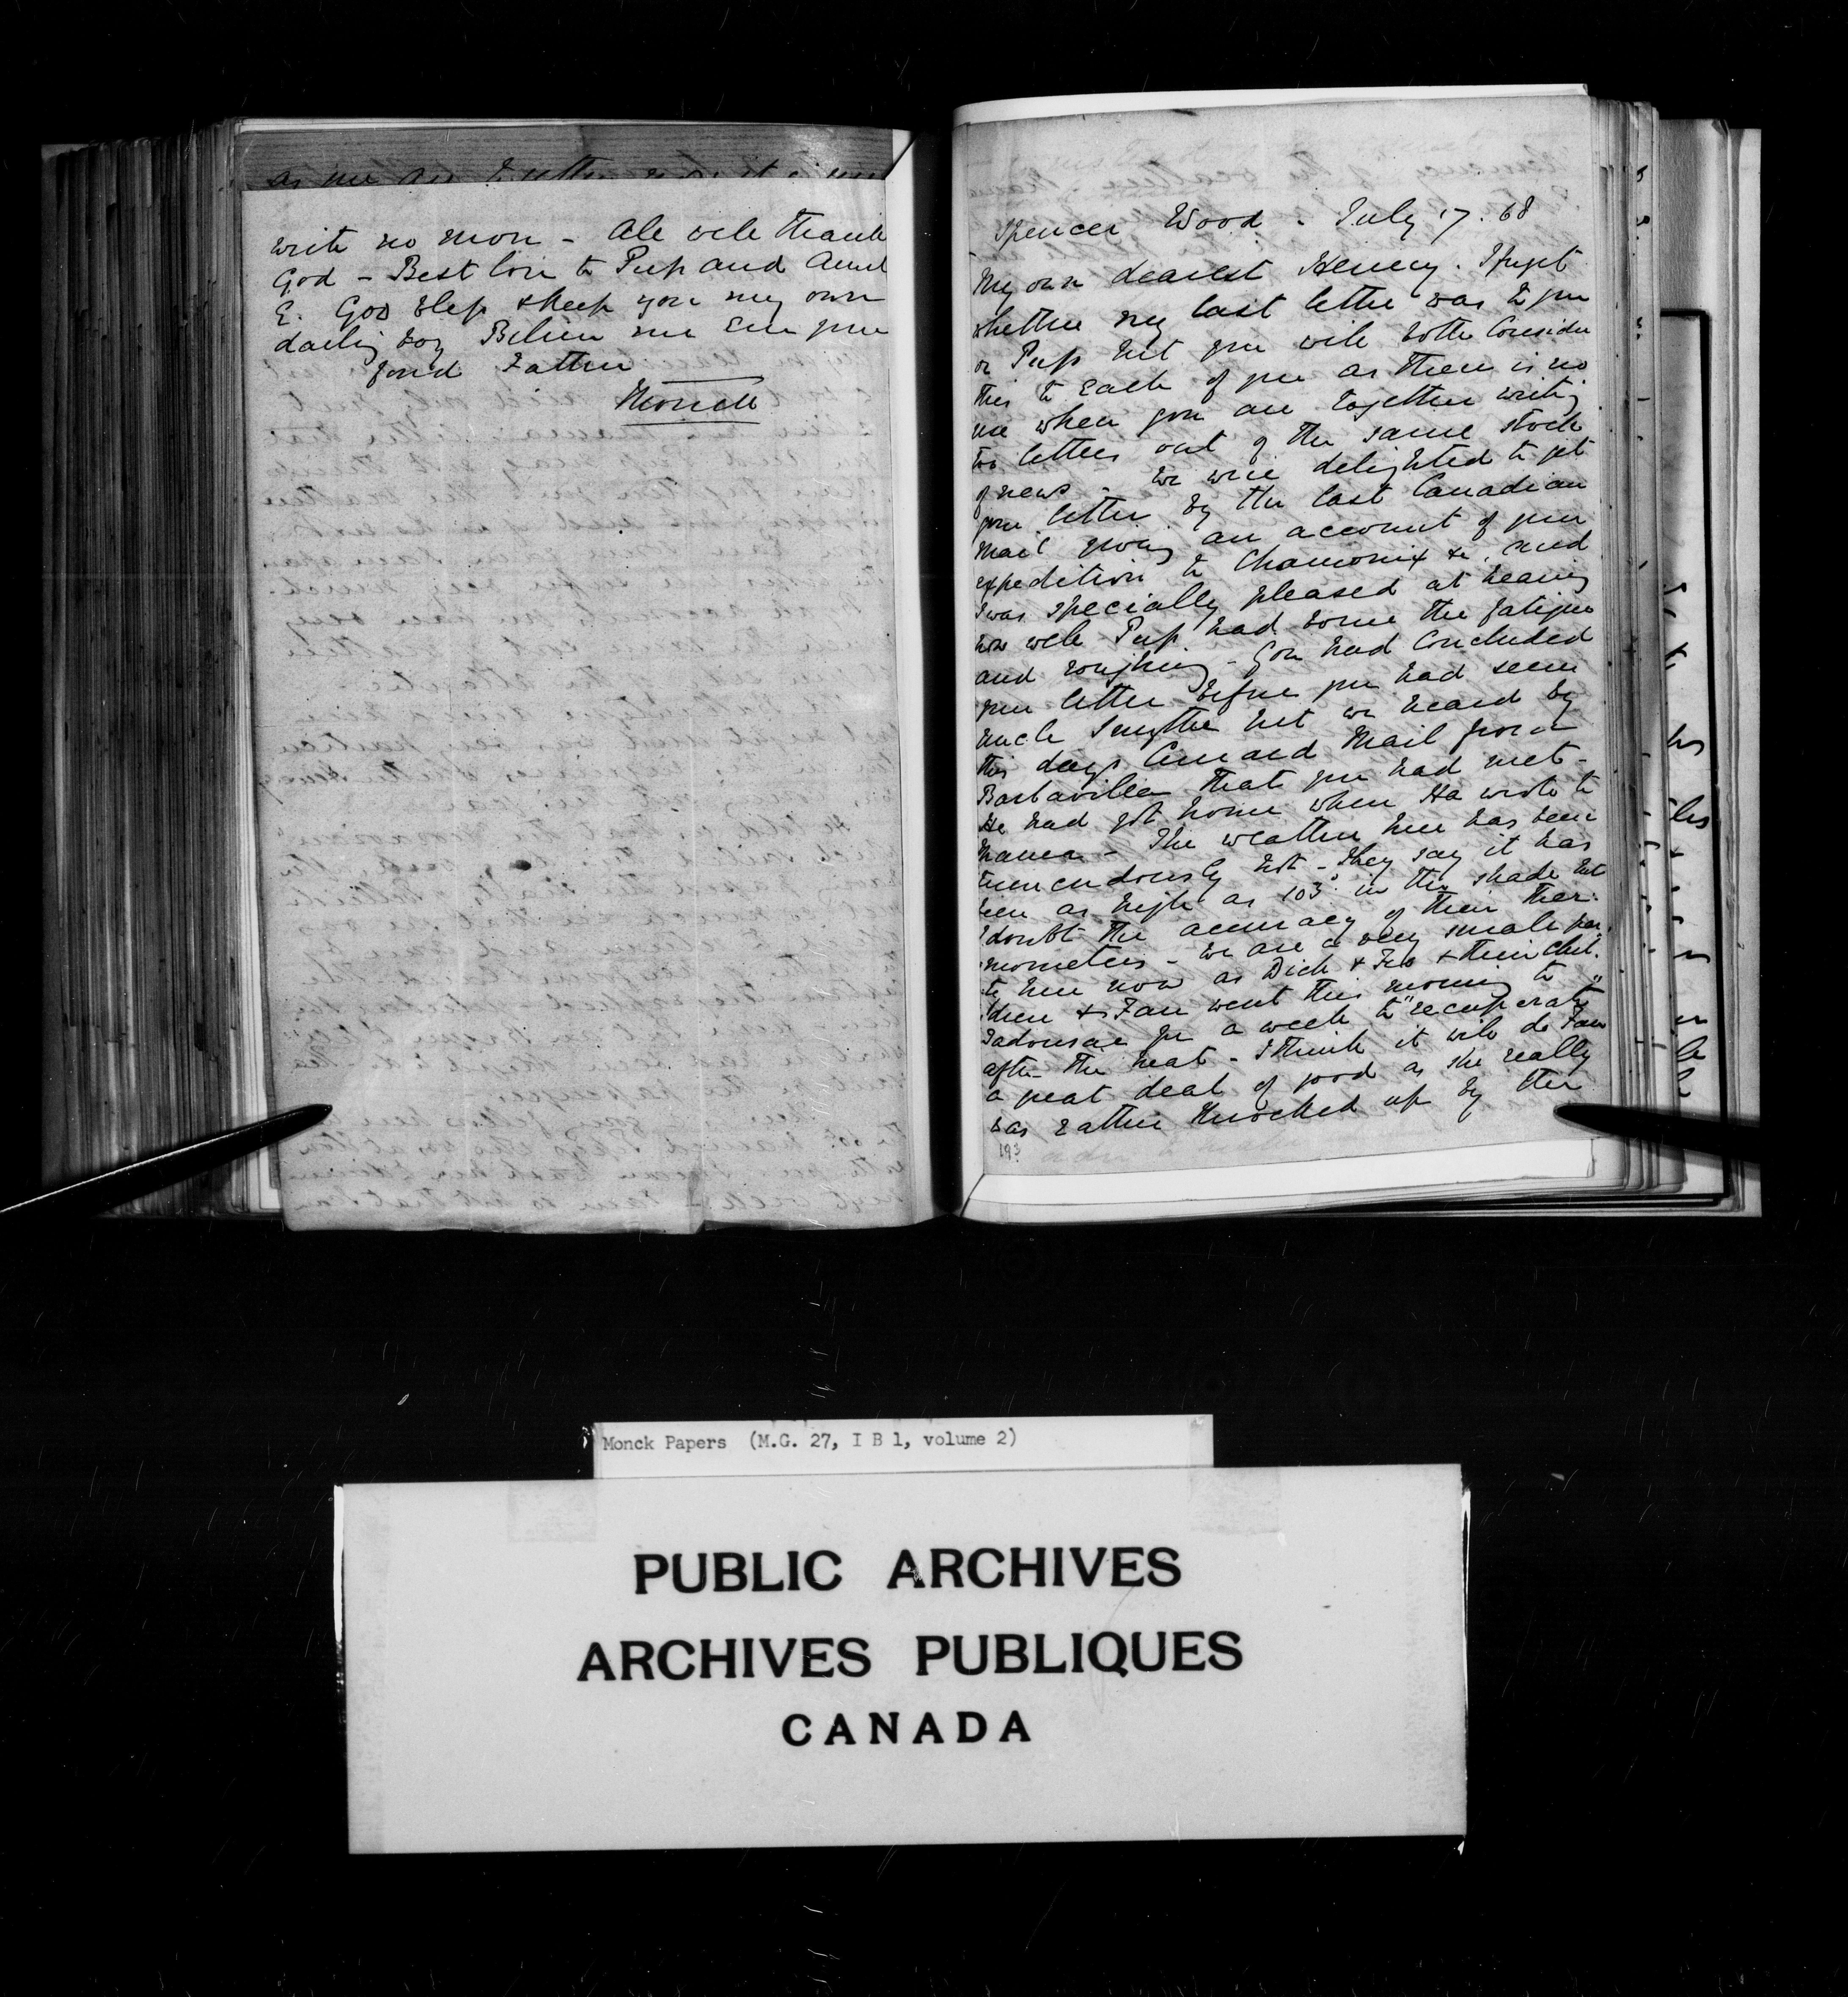 write no more - All well thank
God - Best love to Pup and Aunt
E. God bless & keep you my own
darling boy Believe me Ever your
fond Father
Monck
Spencer Wood. July 17. 68
My own dearest Henry. I forget
whether my last letter was to you
or Pup but you will both consider
this to each of you as there is no
use when you are together writing
two letters out of the same stock
of news - We were delighted to get
your letter by the last Canadian
Mail giving an account of your
expedition to Chamonix &c. and
I was specially pleased at hearing
how well Pup had borne the fatigue
and roughing - You had concluded
your letter before you had seen
Uncle Smythe but we heard by
this days Cunard Mail from
Barbavilla that you had met -
He had got home when Ha wrote to
Mama - The weather here has been
tremendously hot - They say it has
been as high as 103° in the shade but
I doubt the accuracy of their ther-
mometers - We are a very small par-
ty here now as Dick & Feo & their chil-
dren & Fan went this morning to
Tadousac for a week to "recuperate"
after the heat - I think it will do Fan
a great deal of good as she really
was rather knocked up by the
193
Monck Papers (M.G. 27, I B 1, volume 2)
PUBLIC ARCHIVES
ARCHIVES PUBLIQUES
CANADA